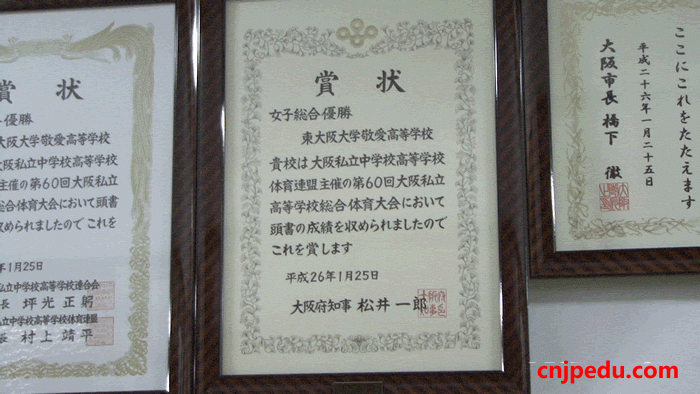 賞状
優勝
大阪大学敬愛高等学校
大阪私立中学校高等学校
主催の第60回大阪私立
総合体育大会において頭書
収められましたので これを
年1月25日
私立中学校高等学校連合会
長 坪光正躬
立中学校高等学校体育連盟
長 村上靖平
賞状
女子総合優勝
東大阪大学敬愛高等学校
貴校は大阪私立中学校高等学校
体育連盟主催の第60回大阪私立
高等学校総合体育大会において
頭書の成績を収められましたので
これを賞します
平成26年1月25日
大阪府知事 松井一郎
ここにこれをたたえます
平成二十六年一月二十五日
大阪市長 橋下 徹
cnjpedu.com